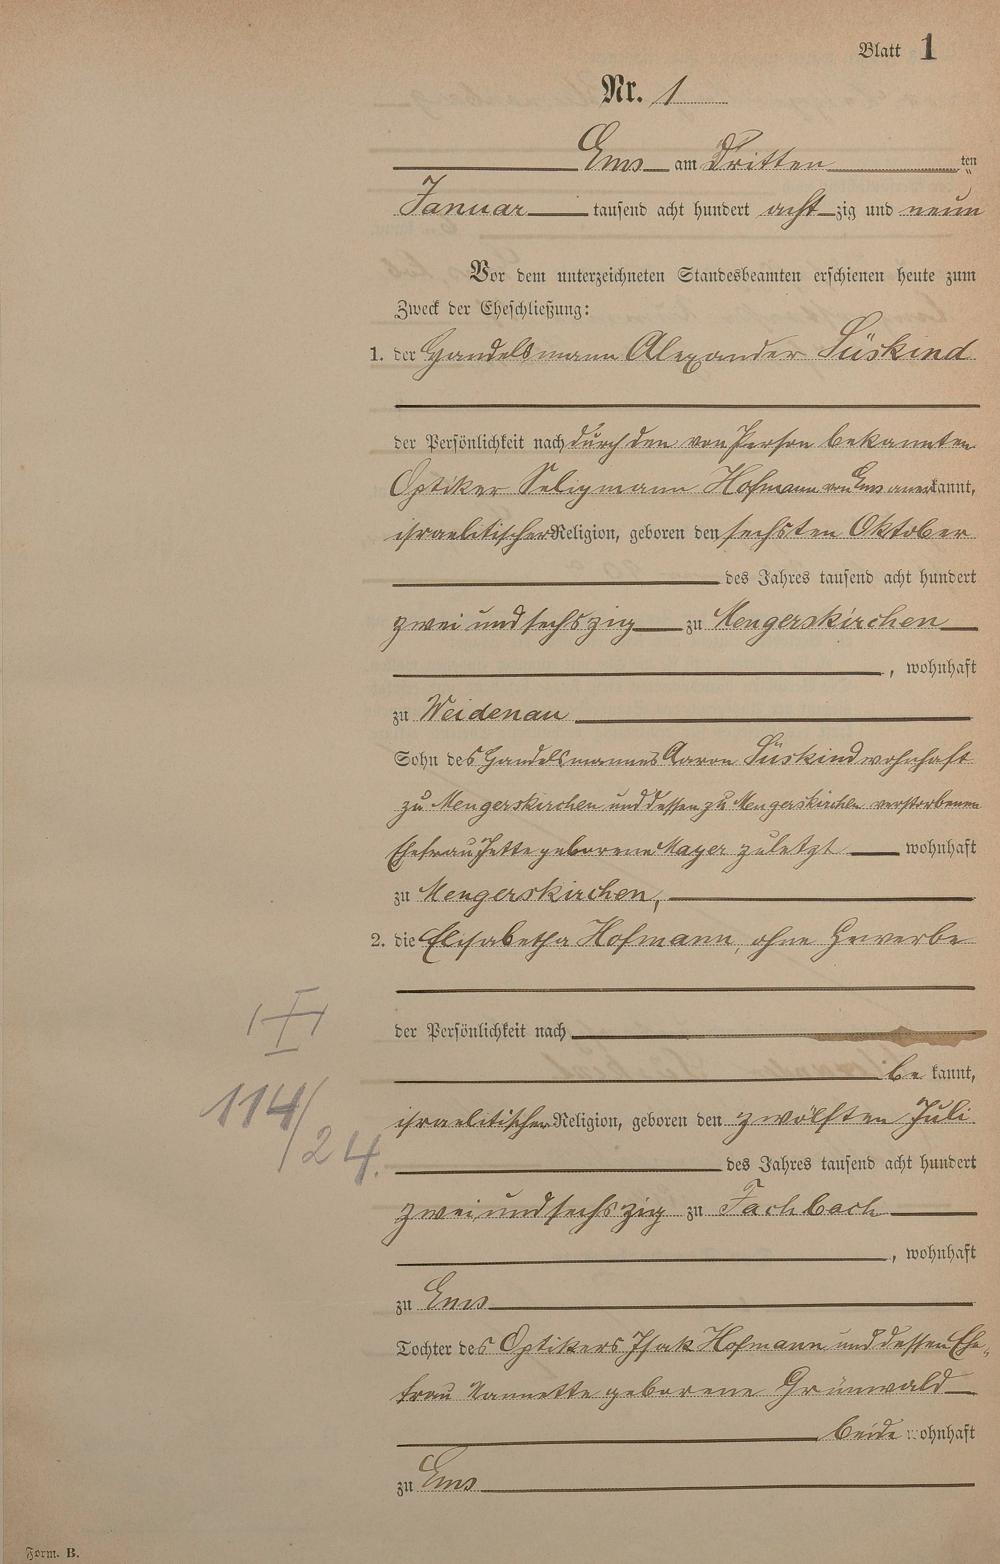 Blatt 1
Nr. 1
Ems am Dritten ten
Januar tausend acht hundert acht zig und neun
Vor dem unterzeichneten Standesbeamten erschienen heute zum
Zweck der Eheschließung:
1. der Handelsmann Alexander Süskind
der Persönlichkeit nach durch den von Person bekannten
Optiker Seligmann Hofmann von Ems anerkannt,
israelitischer Religion, geboren den sechsten Oktober
des Jahres tausend acht hundert
zwei und sechszig zu Mengerskirchen
, wohnhaft
zu Weidenau
Sohn des Handelsmannes Aaron Süskind wohnhaft
zu Mengerskirchen und dessen zu Mengerskirchen verstorbenen
Ehefrau Jette geborene Mayer zuletzt wohnhaft
zu Mengerskirchen,
2. die Elisabetha Hofmann, ohne Gewerbe
der Persönlichkeit nach
be kannt,
israelitischer Religion, geboren den zwölften Juli
114/24.
des Jahres tausend acht hundert
zwei und sechszig zu Fachbach
, wohnhaft
zu Ems
Tochter des Optikers Isak Hofmann und dessen Ehe-
frau Nannette geborene Grünwald
beide wohnhaft
zu Ems
Form. B.